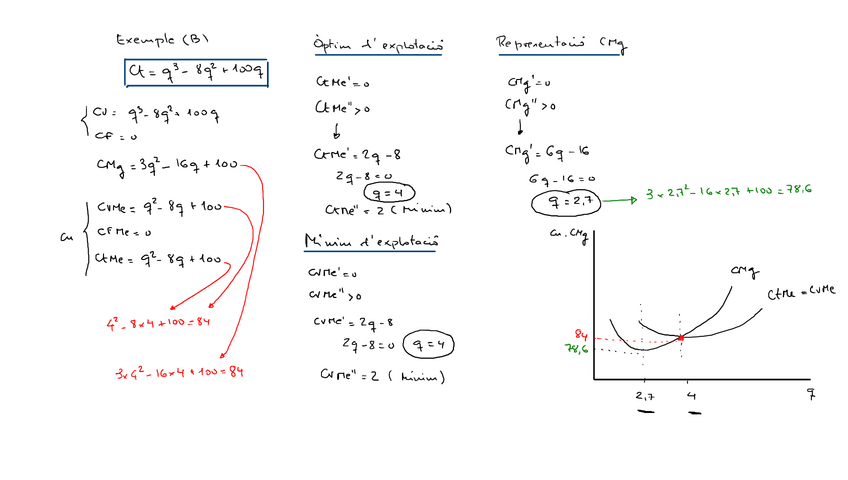 Exemple (B)
Ct = q³ - 8q² + 100q
CV = q³ - 8q² + 100q
CF = 0
CMg = 3q² - 16q + 100
Cu
CVMe = q² - 8q + 100
CFMe = 0
CtMe = q² - 8q + 100
4² - 8x4 + 100 = 84
3x4² - 16x4 + 100 = 84
Òptim d'explotació
CtMe' = 0
CtMe'' > 0
CtMe' = 2q - 8
2q - 8 = 0
q = 4
CtMe'' = 2 (Mínim)
Mínim d'explotació
CVMe' = 0
CVMe'' > 0
CVMe' = 2q - 8
2q - 8 = 0 q = 4
CVMe'' = 2 (Mínim)
Representació CMg
CMg' = 0
CMg'' > 0
CMg' = 6q - 16
6q - 16 = 0
q = 2,7
3 x 2,7² - 16 x 2,7 + 100 = 78,6
Cu, CMg
CMg
CtMe = CVMe
84
78,6
2,7 4 q